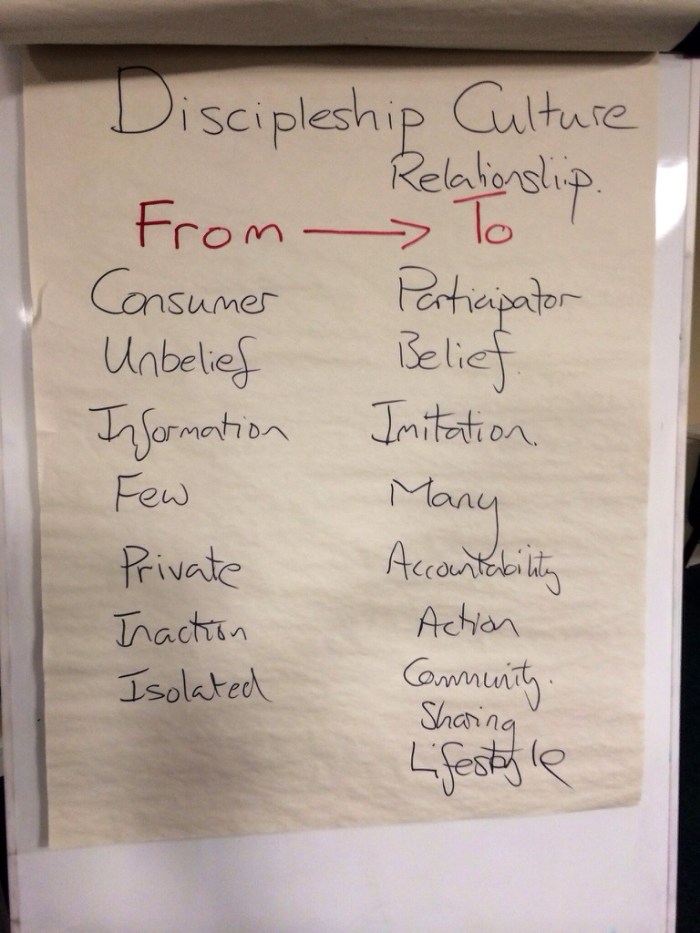 Discipleship Culture
Relationship.
From → To
Consumer Participator
Unbelief Belief.
Information Imitation.
Few Many
Private Accountability
Inaction Action
Isolated Community.
Sharing
Lifestyle